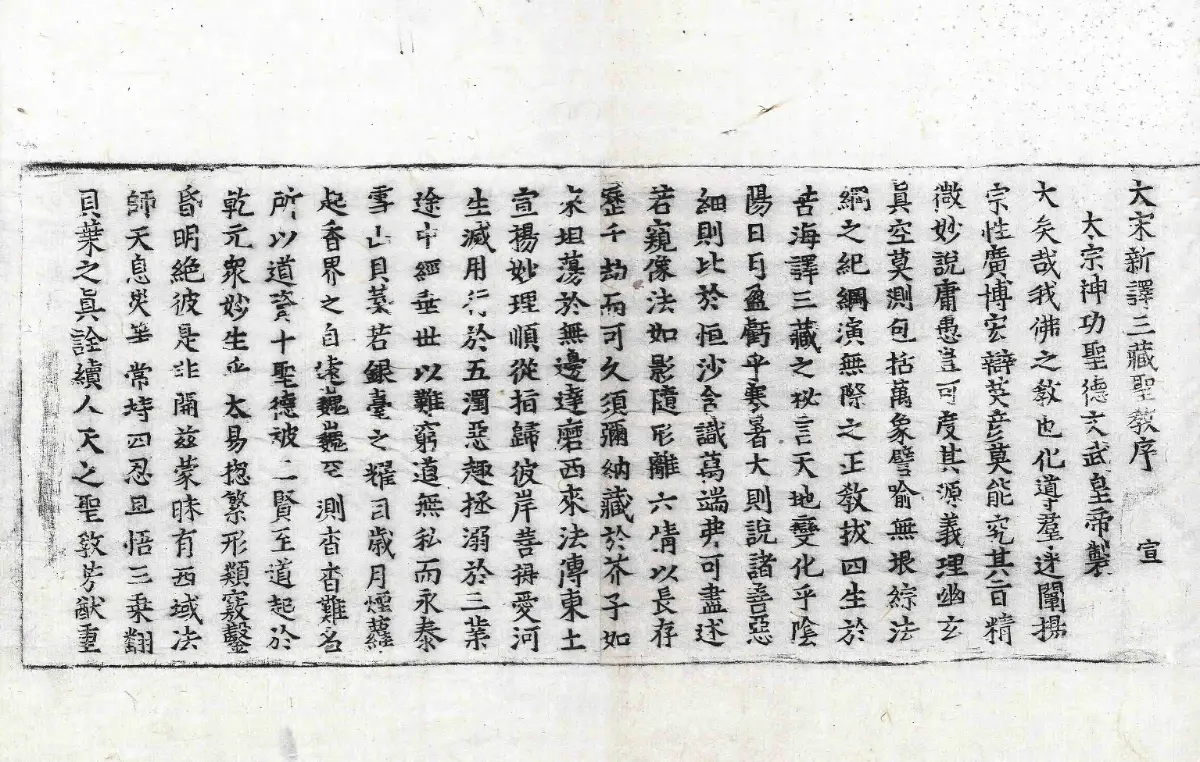 大宋新譯三藏聖教序 宣
太宗神功聖德文武皇帝製
大矣哉我佛之教也化導羣迷闡揚
宗性廣博宏辯英彦莫能究其旨精
微妙說庸愚豈可度其源義理幽玄
眞空莫測包括萬象譬喻無垠綜法
網之紀綱演無際之正教拔四生於
苦海譯三藏之祕言天地變化乎陰
陽日月盈虧乎寒暑大則說諸善惡
細則比於恒沙含識萬端弗可盡述
若窺像法如影隨形離六情以長存
歷千劫而可久須彌納藏於芥子如
來坦蕩於無邊達磨西來法傳東土
宣揚妙理順從指歸彼岸菩提愛河
生滅用行於五濁惡趣拯溺於三業
途中經垂世以難窮道無私而永泰
雪山貝葉若銀臺之耀日歲月煙蘿
起香界之自遠巍巍罕測杳杳難名
所以道資十聖德被二賢至道起於
乾元衆妙生乎太易揔繁形類竅鑿
昏明絶彼是非開兹蒙昧有西域法
師天息災等常持四忍早悟三乘翻
貝葉之眞詮續人天之聖教芳猷重